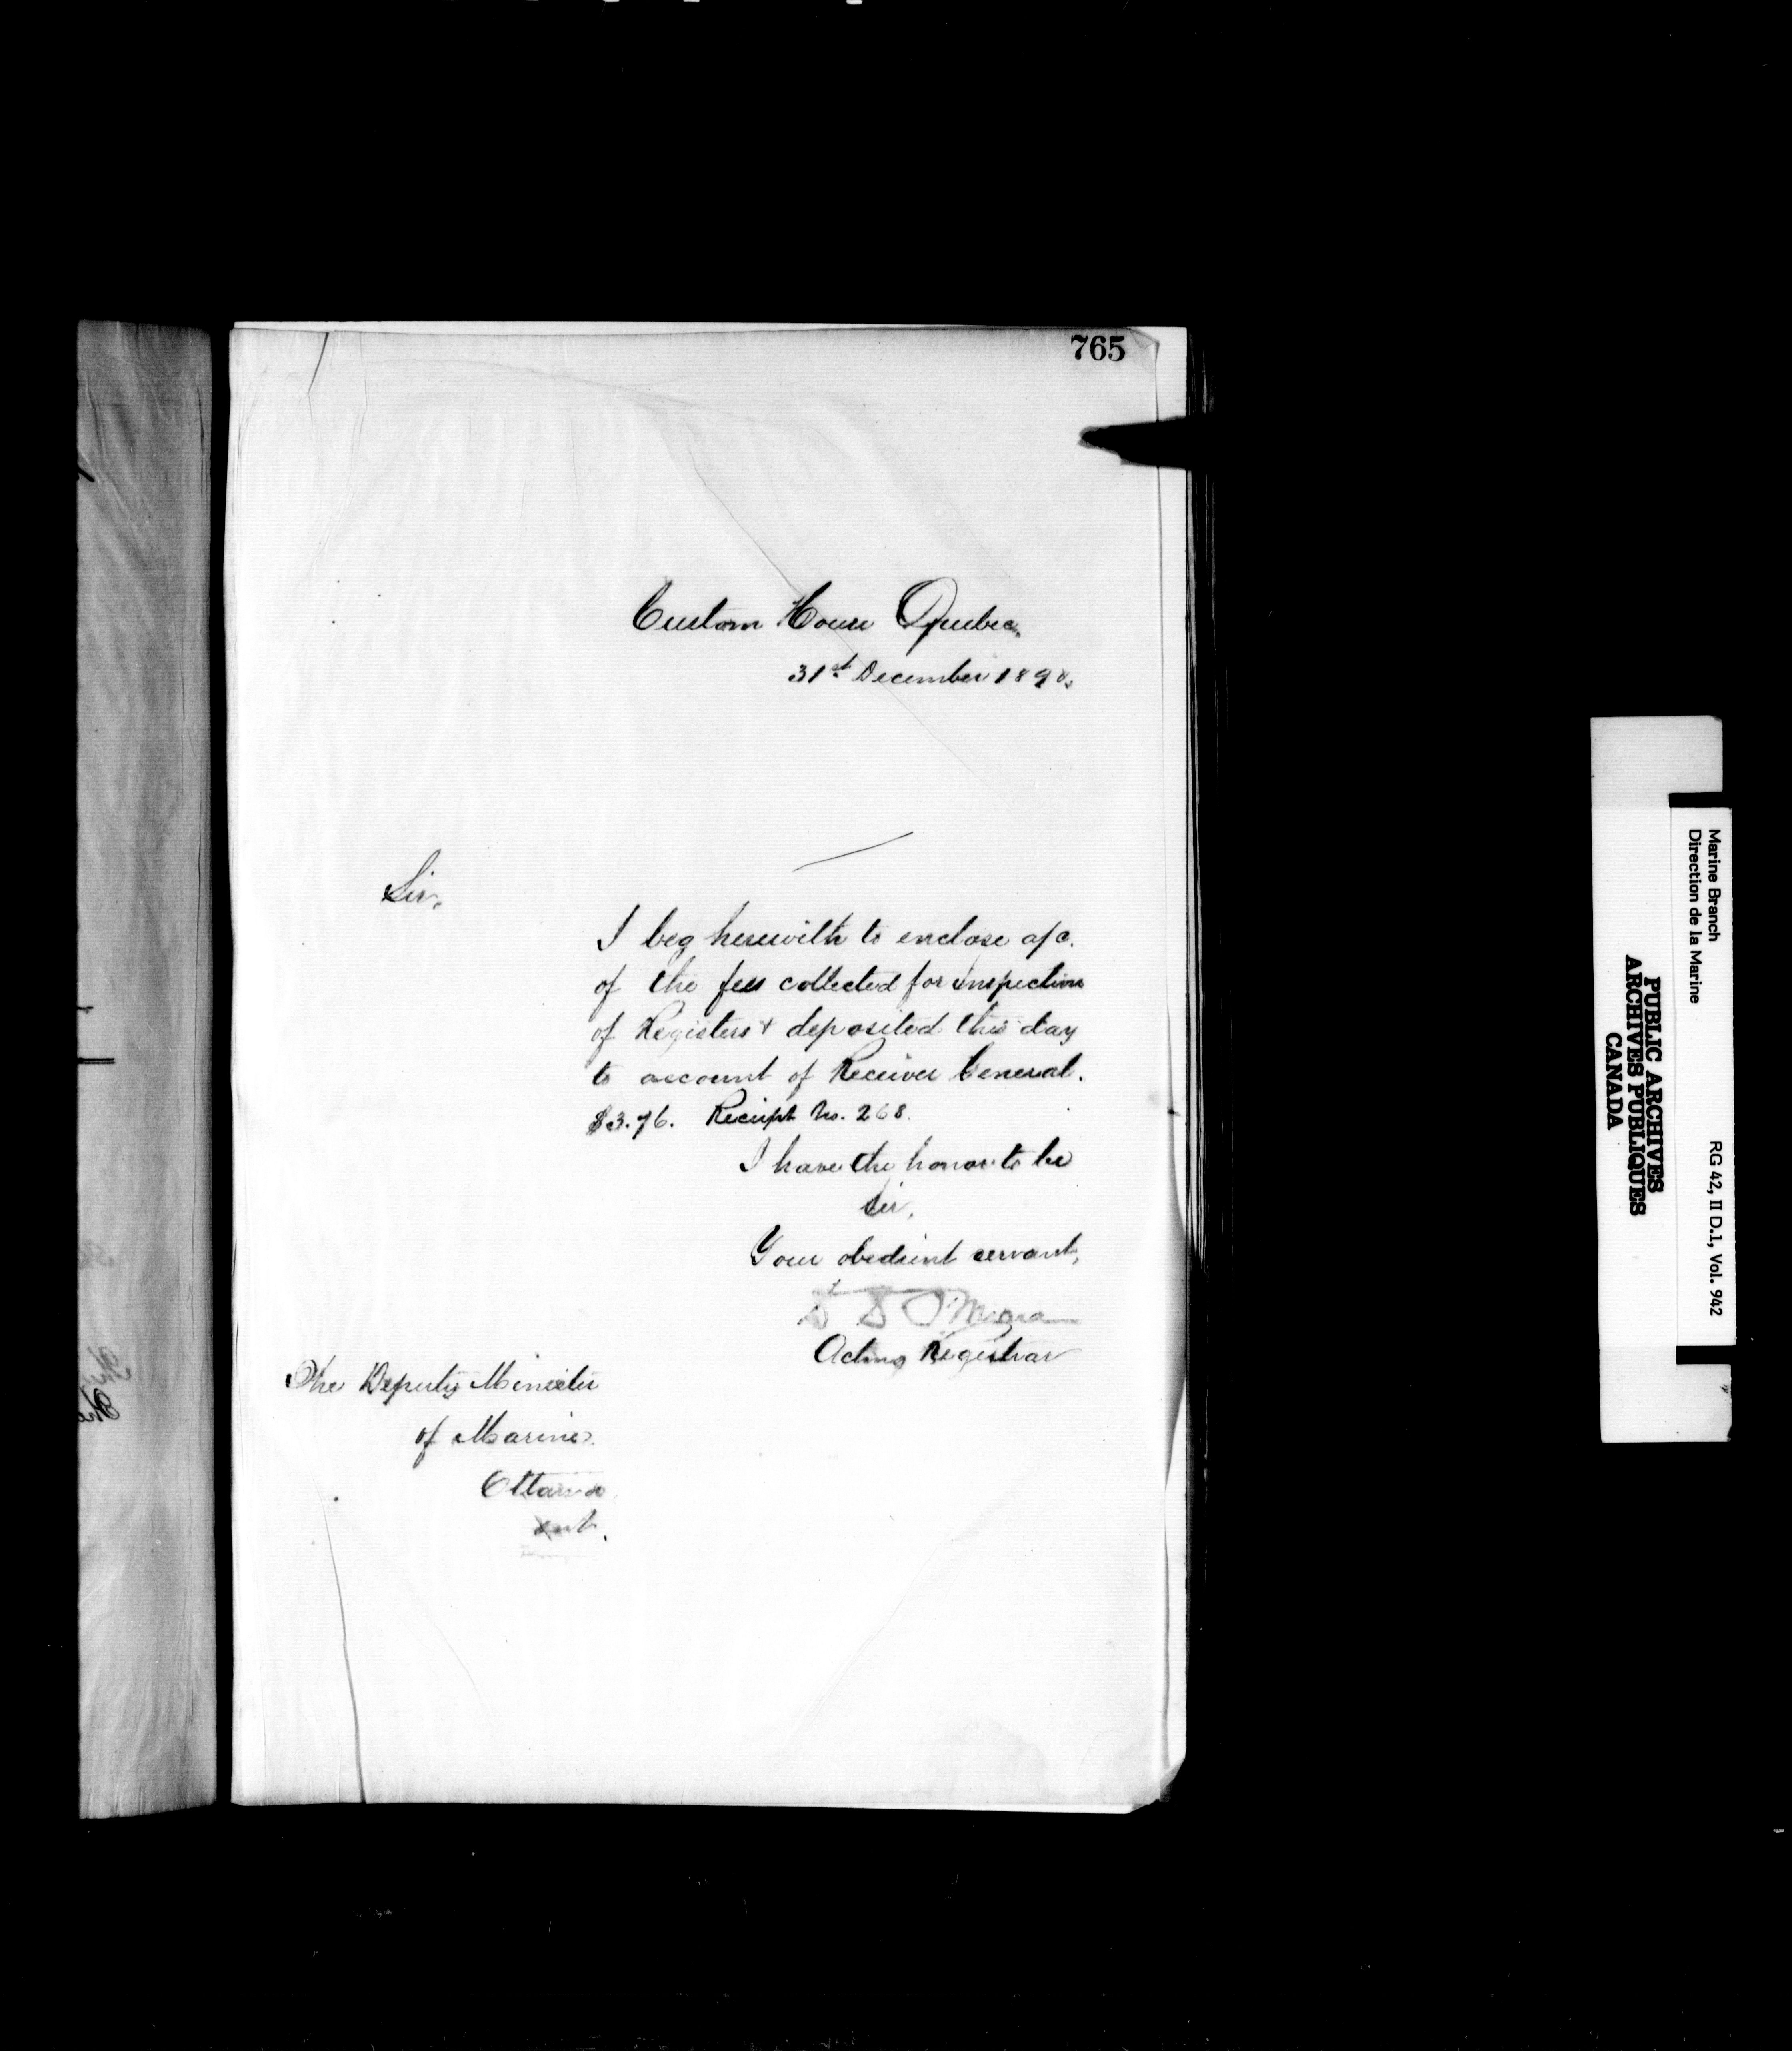 765
Custom House Quebec,
31st December 1890.
Sir,
I beg herewith to enclose a/c.
of the fees collected for Inspection
of Registers & deposited this day
to account of Receiver General.
$3.76. Receipt No. 268.
I have the honor to be
Sir,
Your obedient servant,
O'Meara
Acting Registrar
The Deputy Minister
of Marine.
Ottawa
Ont.
Marine Branch
Direction de la Marine
RG 42, II D.1, Vol. 942
PUBLIC ARCHIVES
ARCHIVES PUBLIQUES
CANADA